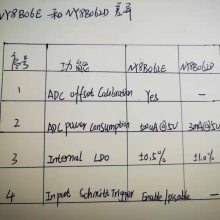 NY8B062E 和 NY8B062D 差异
序号 功能 NY8B062E NY8B062D
1 ADC offset Calibration Yes —
2 ADC power consumption 500uA@5V 3mA@5V
3 Internal LDO ±0.5% ±1.0%
4 Input Schmitt Trigger Enable/Disable —